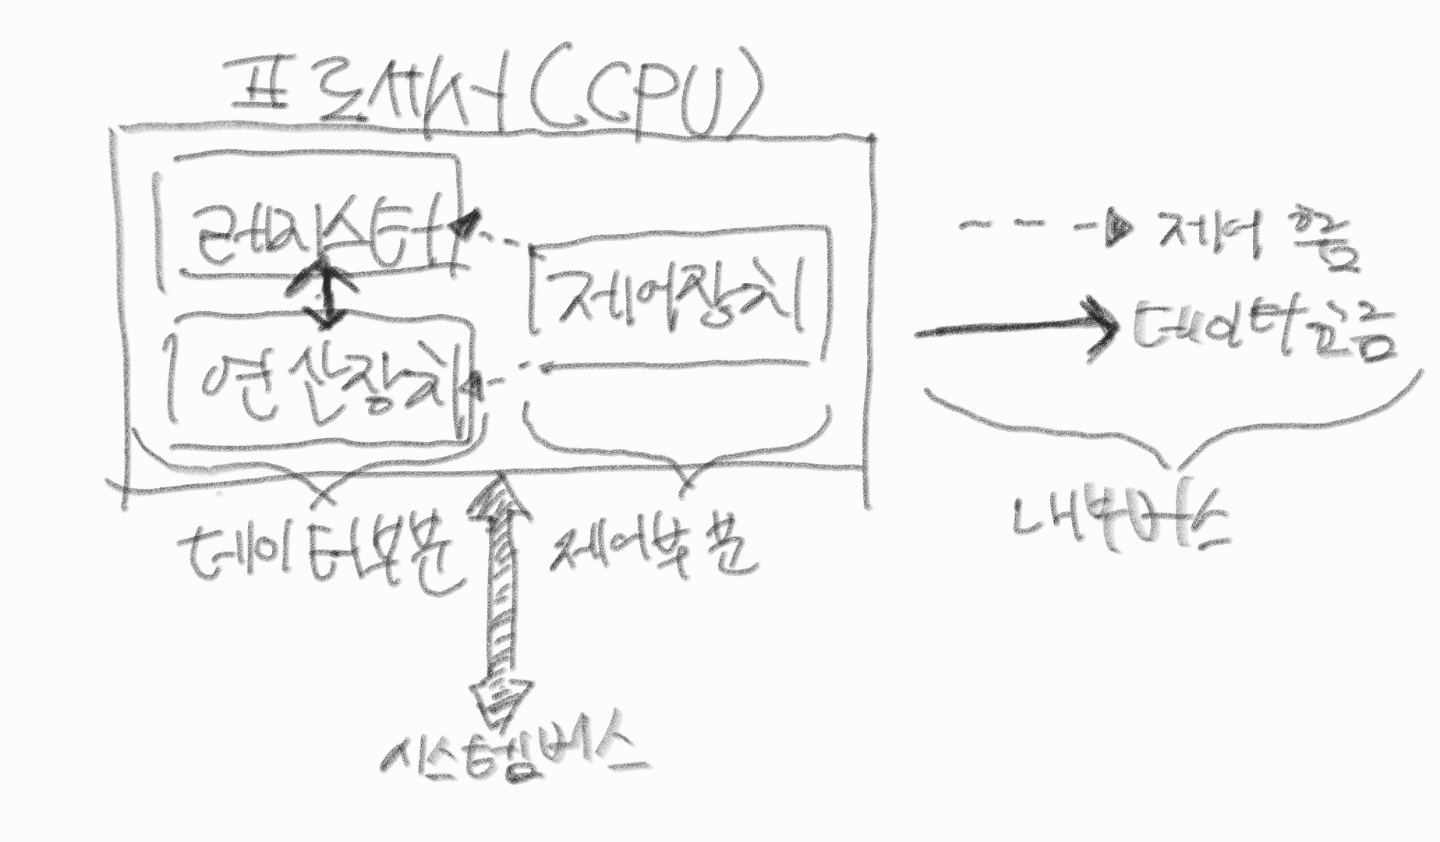 프로세서(CPU)
레지스터
제어장치
연산장치
데이터부분
제어부분
시스템버스
제어 흐름
데이터 흐름
내부버스